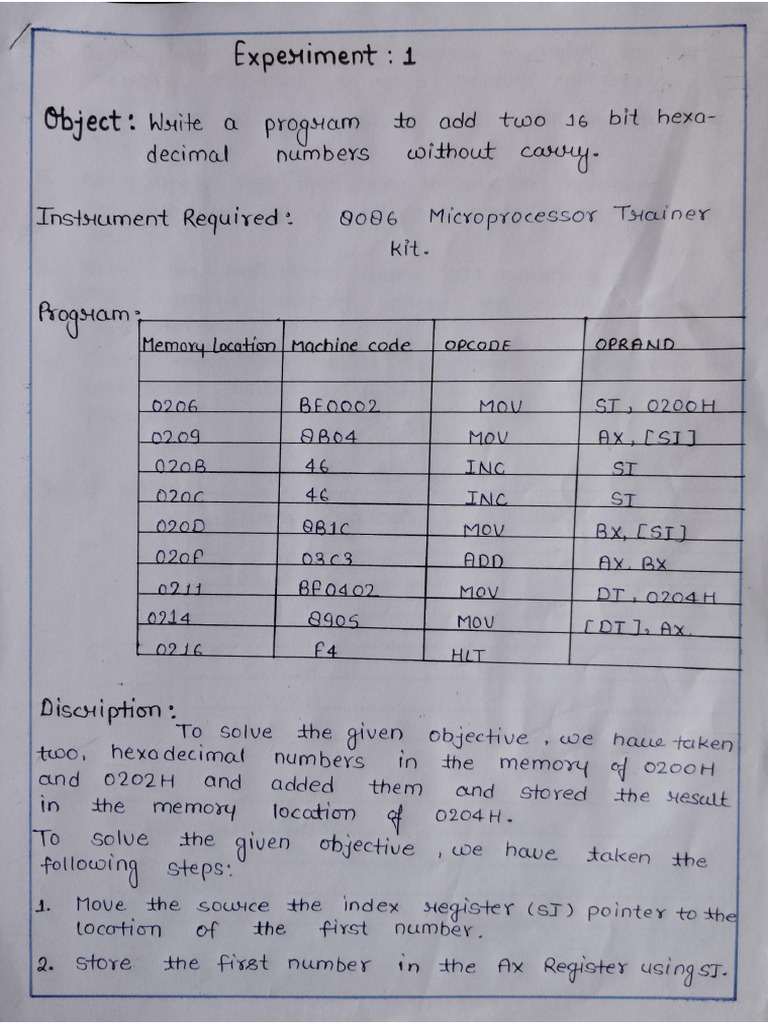 Experiment : 1
Object: Write a program to add two 16 bit hexa-
decimal numbers without carry.
Instrument Required: 8086 Microprocessor Trainer
kit.
Program:
Memory Location Machine code OPCODE OPRAND
0206 BE0002 MOV SI, 0200H
0209 8B04 MOV AX, [SI]
020B 46 INC SI
020C 46 INC SI
020D 8B1C MOV BX, [SI]
020F 03C3 ADD AX. BX
0211 BF0402 MOV DI, 0204H
0214 8905 MOV [DI], AX.
0216 F4 HLT
Discription:
To solve the given objective, we have taken
two, hexadecimal numbers in the memory of 0200H
and 0202H and added them and stored the result
in the memory location of 0204H.
To solve the given objective, we have taken the
following steps:
1. Move the source the index register (SI) pointer to the
location of the first number.
2. Store the first number in the Ax Register using SI.